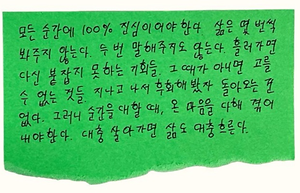 모든 순간에 100% 진심이어야 한다. 삶은 몇 번씩
봐주지 않는다. 두 번 말해주지도 않는다. 흘러가면
다신 붙잡지 못하는 기회들. 그때가 아니면 고를
수 없는 것들. 지나고 나서 후회해봤자 돌아오는 건
없다. 그러니 순간을 대할 때, 온 마음을 다해 겪어
내야 한다. 대충 살아가면 삶도 대충 흐른다.